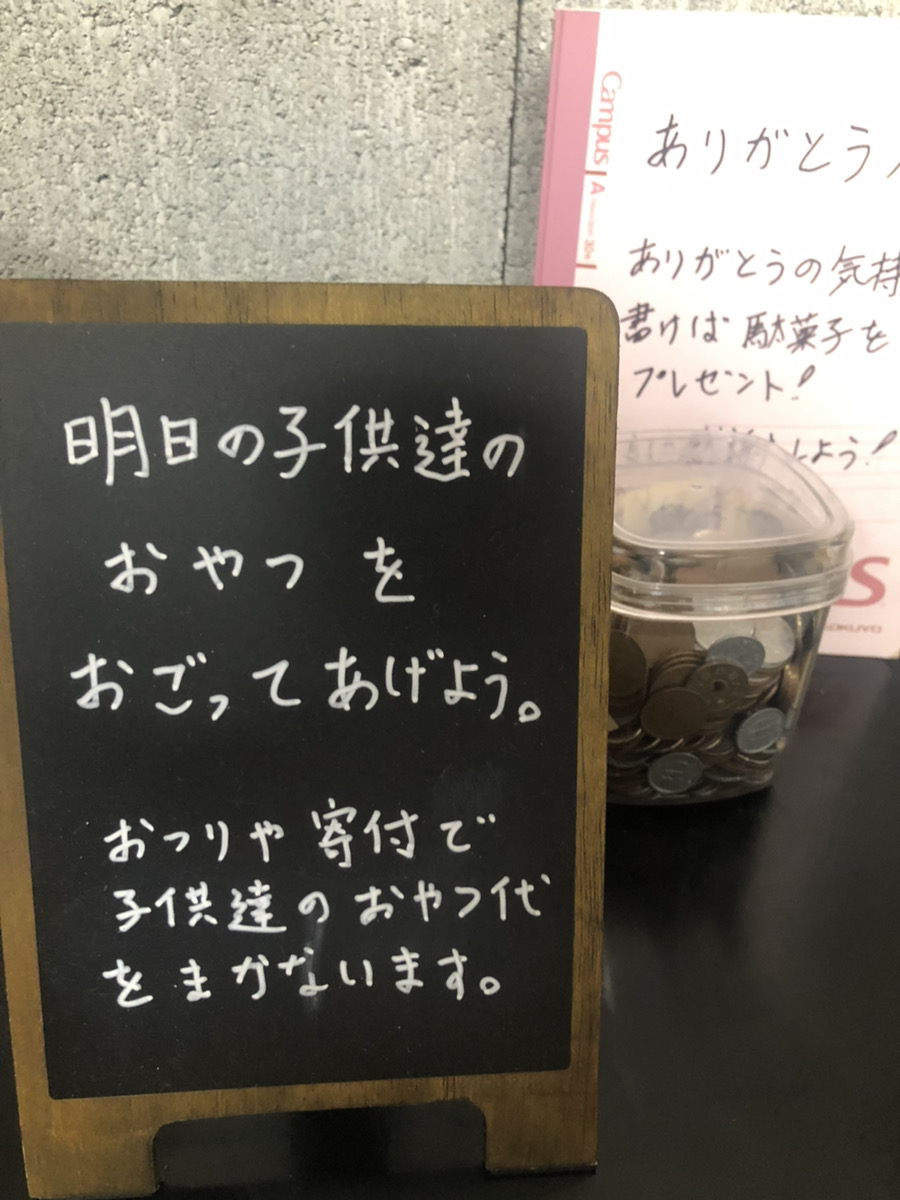 明日の子供達の
おやつを
おごってあげよう。
おつりや寄付で
子供達のおやつ代
をまかないます。
Campus
A
ありがとう
ありがとうの気持
書けば駄菓子を
プレゼント!
しよう!
S
KOKUYO